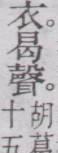 衣。曷聲。
胡葛
十五